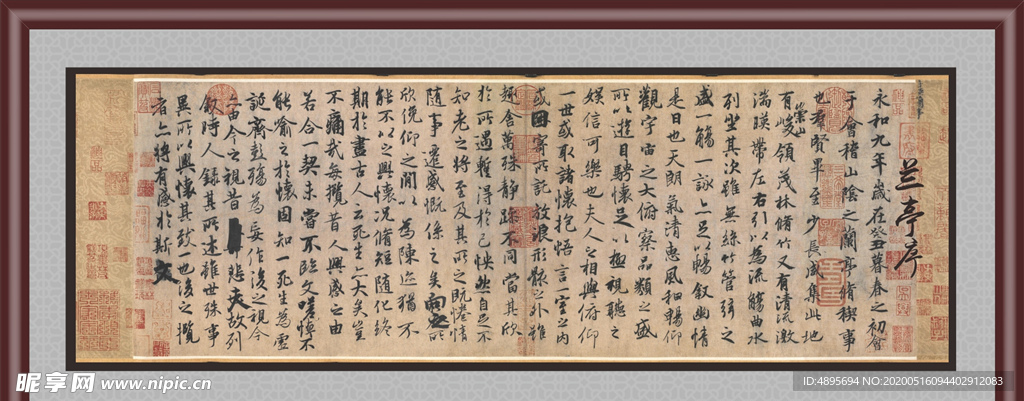 兰亭序
永和九年歲在癸丑暮春之初會
于會稽山陰之蘭亭脩稧事
也羣賢畢至少長咸集此地
有崇山峻領茂林脩竹又有清流激
湍暎帶左右引以為流觴曲水
列坐其次雖無絲竹管弦之
盛一觴一詠亦足以暢叙幽情
是日也天朗氣清惠風和暢仰
觀宇宙之大俯察品類之盛
所以遊目騁懷足以極視聽之
娛信可樂也夫人之相與俯仰
一世或取諸懷抱悟言一室之內
或因寄所託放浪形骸之外雖
趣舍萬殊靜躁不同當其欣
於所遇蹔得於己怏然自足不
知老之將至及其所之既惓情
隨事遷感慨係之矣向之所
欣俛仰之閒以為陳迹猶不
能不以之興懷況脩短隨化終
期於盡古人云死生亦大矣豈
不痛哉每攬昔人興感之由
若合一契未嘗不臨文嗟悼不
能喻之於懷固知一死生為虛
誕齊彭殤為妄作後之視今
亦由今之視昔悲夫故列
叙時人錄其所述雖世殊事
異所以興懷其致一也後之攬
者亦將有感於斯文
昵享网 www.nipic.cn
ID:4895694 NO:20200516094402912083